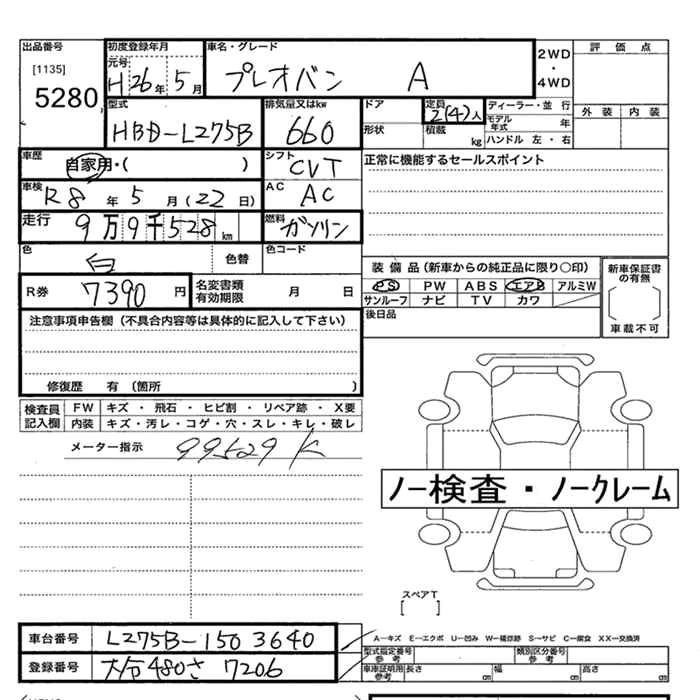 出品番号
[1135]
5280
初度登録年月
元号
H26年5月
車名・グレード
プレオバン A
2WD
・
4WD
評価点
外装 内装
型式
HBD-L275B
排気量又はkw
660
ドア
定員
2(4)人
ディーラー・並行
モデル年式 年
形状
積載 kg
ハンドル 左・右
車歴
自家用・( )
シフト
CVT
正常に機能するセールスポイント
車検
R8年5月(22日)
AC
AC
走行
9万9千528km
燃料
ガソリン
色
白
色替
色コード
装備品(新車からの純正品に限り○印)
PS PW ABS エアB アルミW
サンルーフ ナビ TV カワ
新車保証書の有無
車載不可
R券 7390円
名変書類有効期限 月 日
後日品
注意事項申告欄(不具合内容等は具体的に記入して下さい)
修復歴 有(箇所 )
検査員記入欄
FW キズ・飛石・ヒビ割・リペア跡・X要
内装 キズ・汚レ・コゲ・穴・スレ・キレ・破レ
メーター指示 99529K
ノー検査・ノークレーム
スペアT
[ ]
A-キズ E-エクボ U-凹み W-補修跡 S-サビ C-腐食 XX-交換済
車台番号 L275B-1503640
登録番号 大分480さ7206
型式指定番号 参考
類別区分番号 参考
車庫証明用 参考 長さ cm 幅 cm 高さ cm